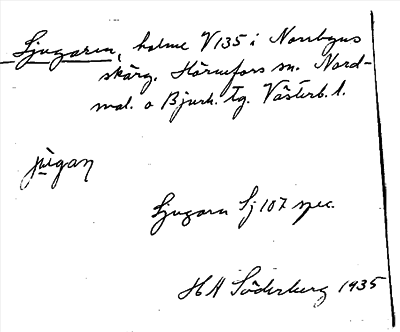 Ljugaren, holme V135 i Norrbyns
skärg. Hörnefors sn. Nord-
mal. o Bjurh. tg. Västerb. l.
Ljugarn Sj 107 spec.
H H Söderberg 1935